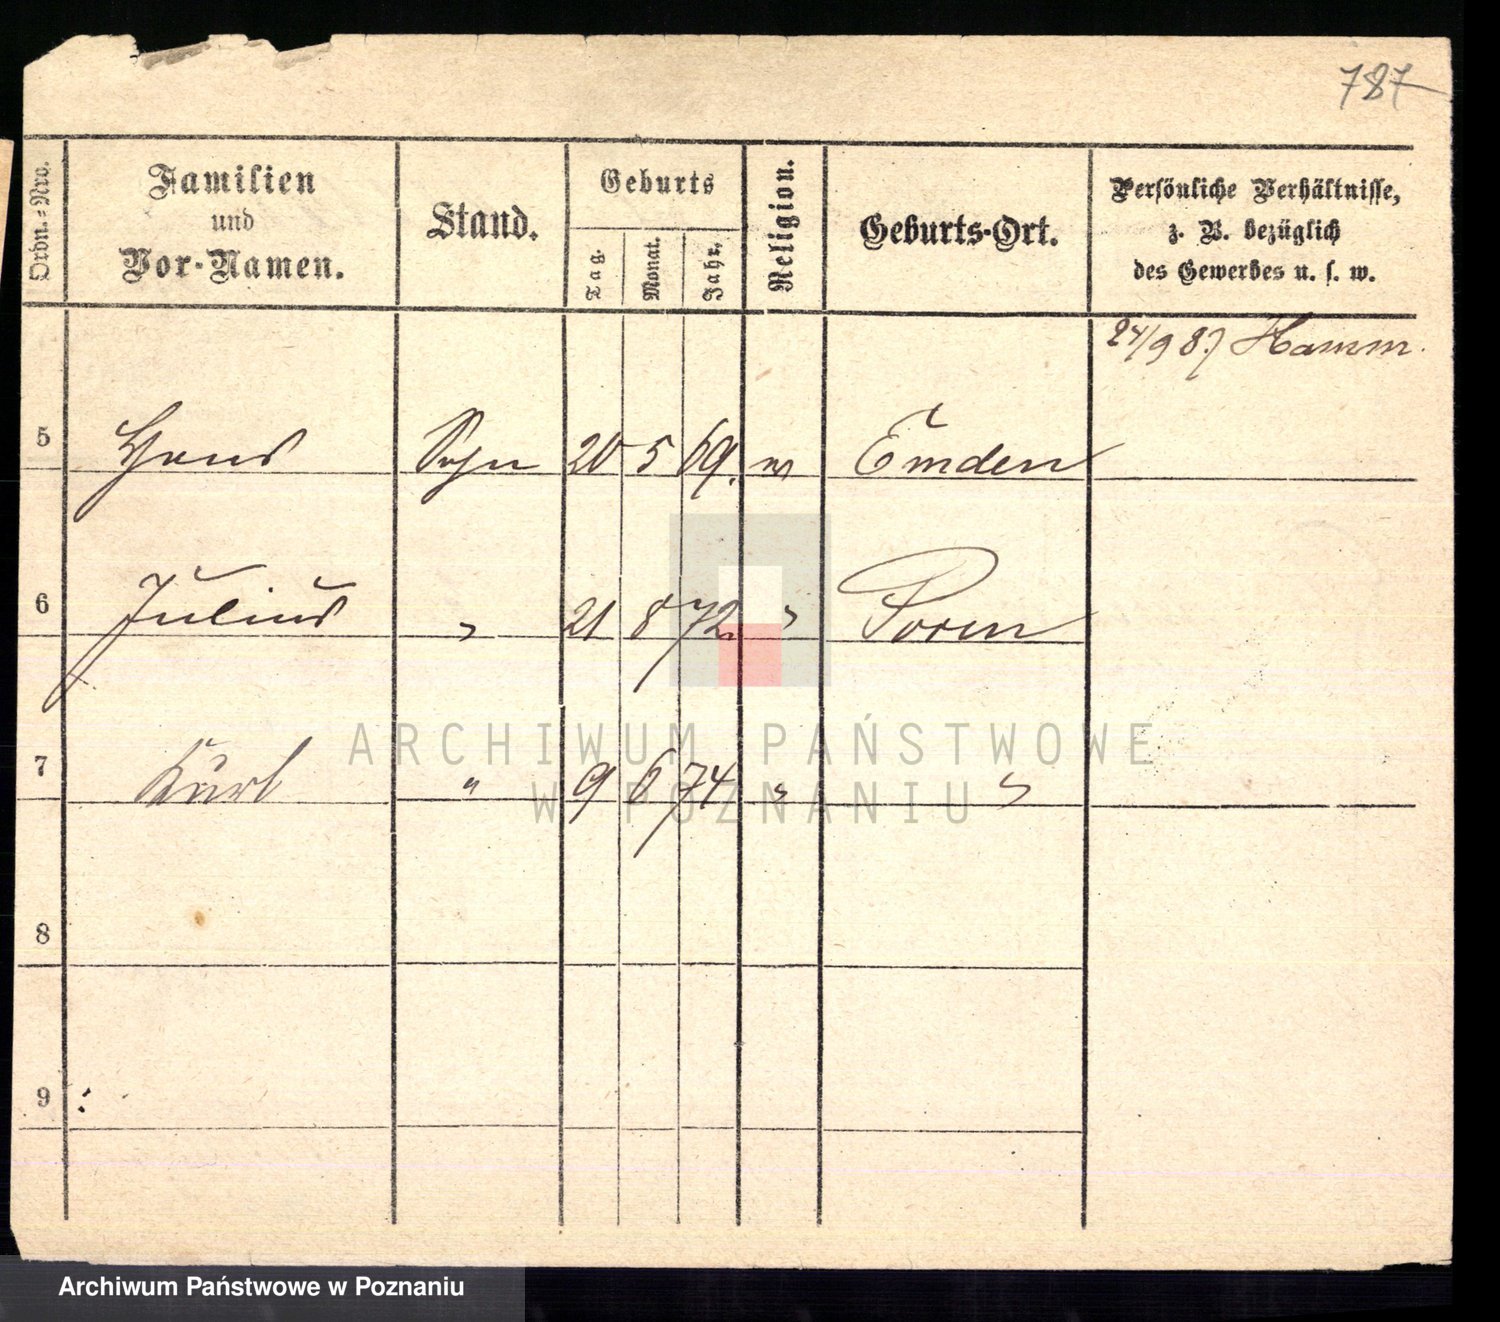 787
Ordn.-Nro.
Familien
und
Vor-Namen.
Stand.
Geburts
Tag.
Monat.
Jahr.
Religion.
Geburts-Ort.
Persönliche Verhältnisse,
z. B. bezüglich
des Gewerbes u. s. w.
24/9 87 Hamm.
5 Hans Sohn 20 5 69. Emden
6 Julius " 21 8 72 "
7 Kurt " 9 6 74 " "
8
9 :
ARCHIWUM PAŃSTWOWE
W POZNANIU
Archiwum Państwowe w Poznaniu